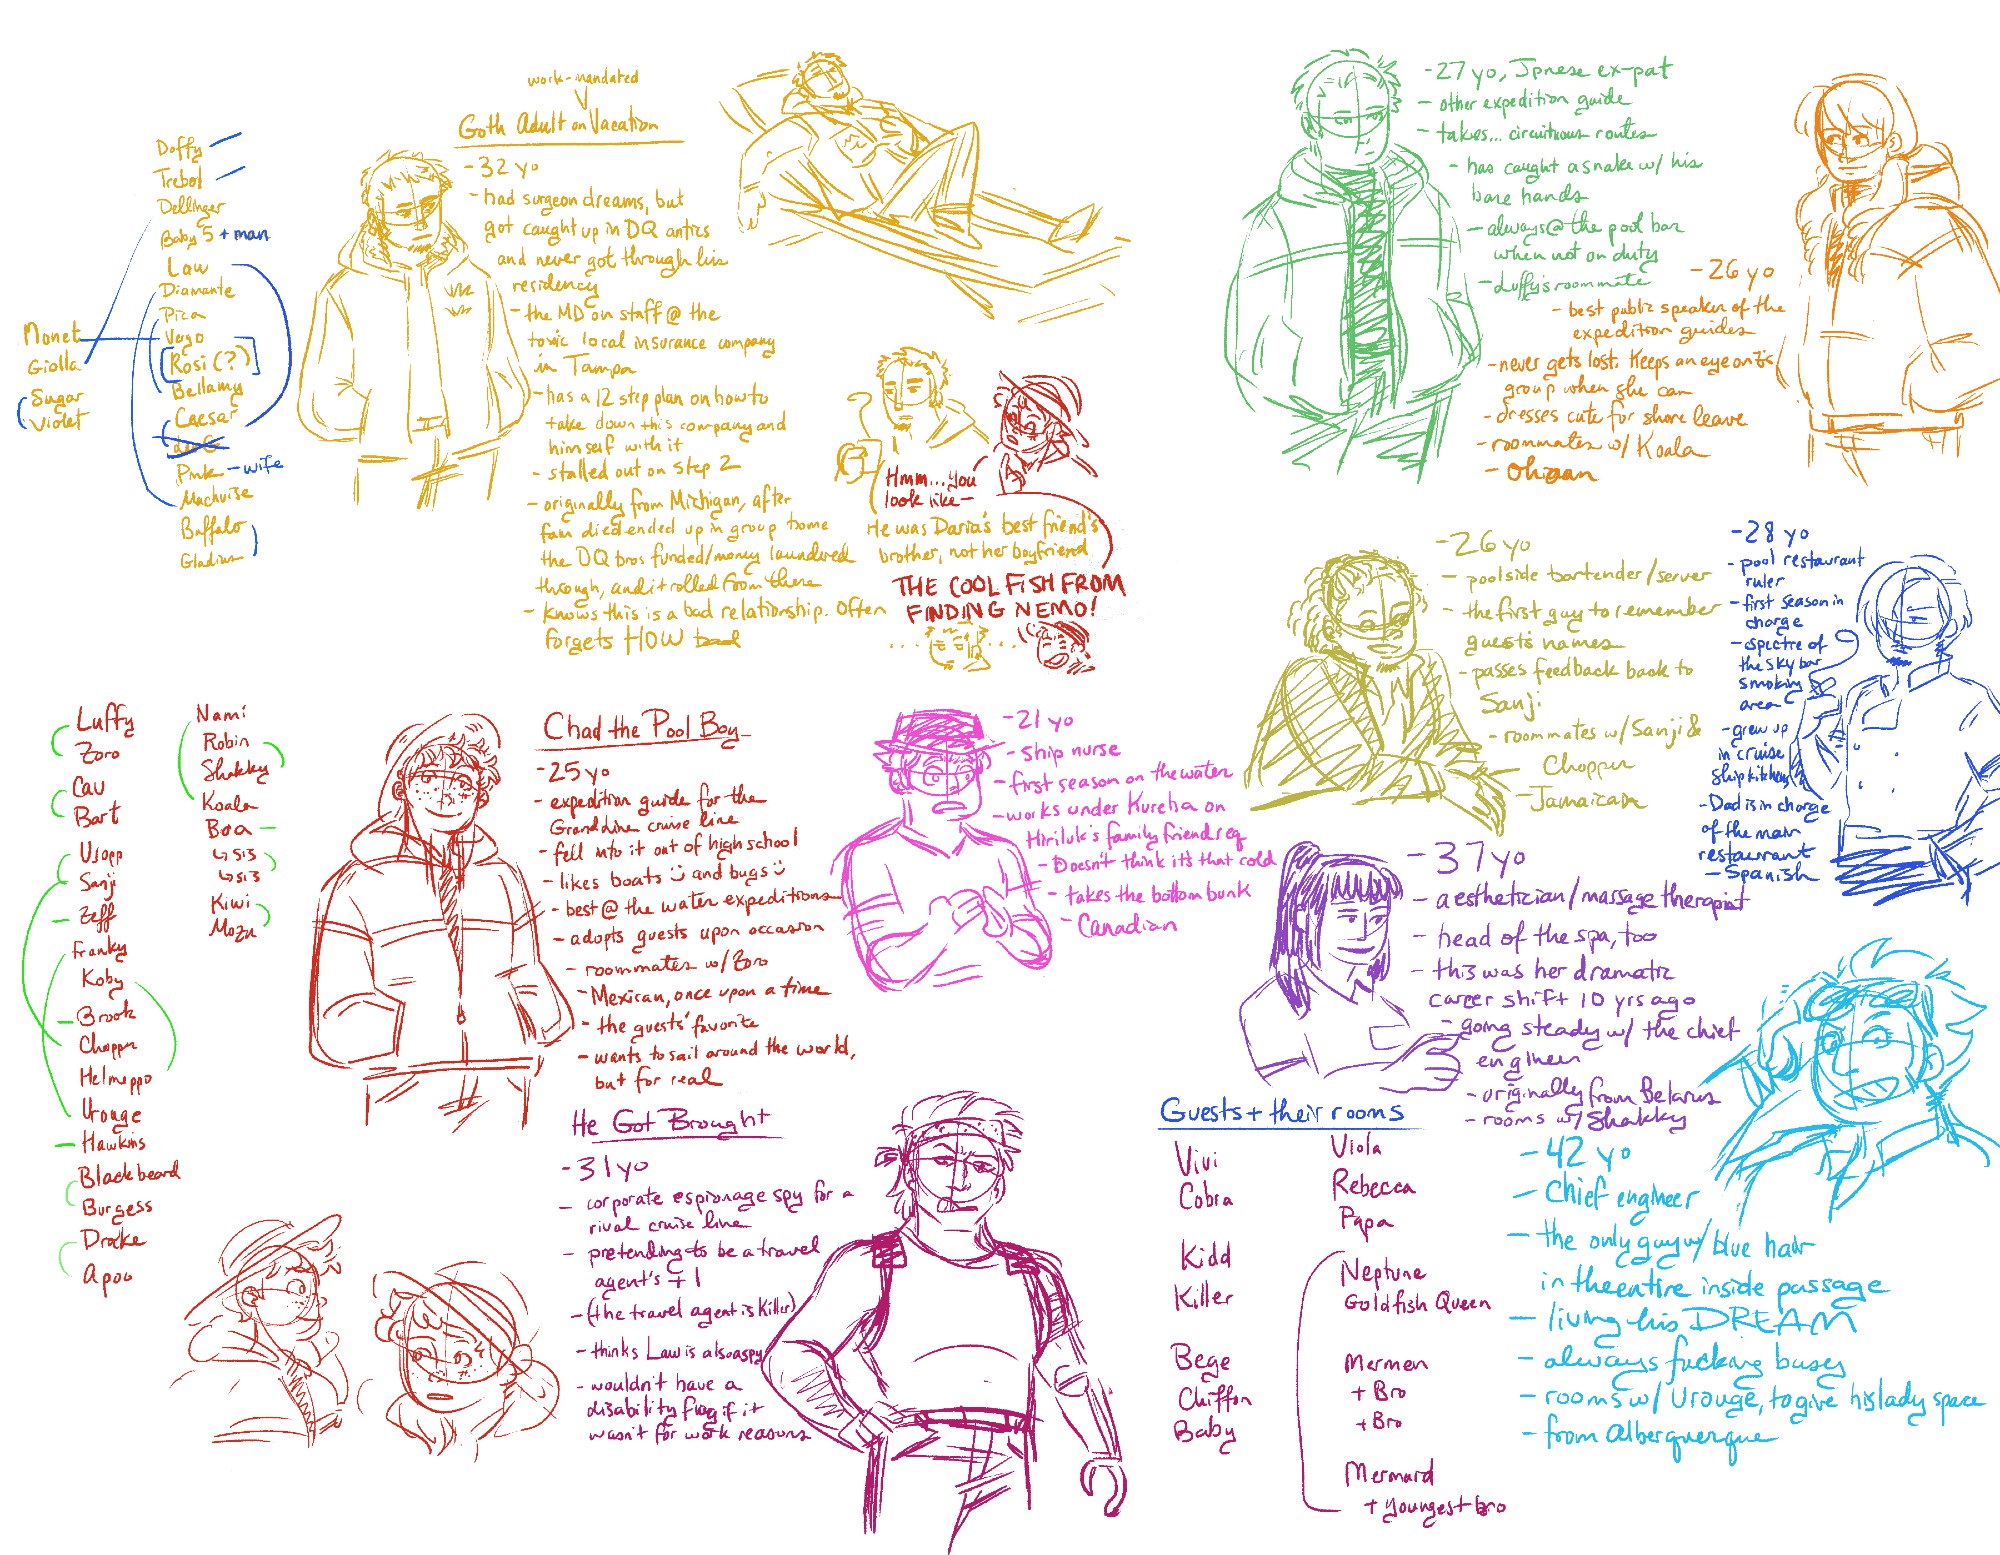 Doffy
Trebol
Dellinger
Baby 5 + man
Law
Diamante
Pica
Vergo
[Rosi (?)]
Bellamy
Caesar
Pink - wife
Machvise
Buffalo
Gladius
Monet
Giolla
Sugar
Violet
work-mandated
Goth Adult on Vacation
- 32 yo
- had surgeon dreams, but
got caught up in DQ antics
and never got through his
residency
- the MD on staff @ the
toxic local insurance company
in Tampa
- has a 12 step plan on how to
take down this company and
himself with it
- stalled out on step 2
- originally from Michigan, after
fam died ended up in group home
the DQ bros funded/money laundered
through, and it rolled from there
- knows this is a bad relationship. Often
forgets HOW bad
Hmm... you
look like-
He was Daria's best friend's
brother, not her boyfriend
THE COOL FISH FROM
FINDING NEMO!
-27 yo, Jpnese ex-pat
- other expedition guide
- takes... circuitous routes
- has caught a snake w/ his
bare hands
- always @ the pool bar
when not on duty
- Luffy's roommate
- 26 yo
- best public speaker of the
expedition guides
- never gets lost. Keeps an eye on Z's
group when she can
- dresses cute for shore leave
- roommates w/ Koala
- Ohioan
-26 yo
- poolside bartender/server
- the first guy to remember
guests names
- passes feedback back to
Sanji
- roommates w/ Sanji &
Chopper
- Jamaican
- 28 yo
- pool restaurant
ruler
- first season in
charge
- spectre of
the sky bar
smoking
area
- grew up
in cruise
ship kitchens
- Dad is in charge
of the main
restaurant
- Spanish
Luffy
Zoro
Cav
Bart
Usopp
Sanji
Zeff
Franky
Koby
Brook
Chopper
Helmeppo
Urouge
Hawkins
Blackbeard
Burgess
Drake
Apoo
Nami
Robin
Shakky
Koala
Boa
↳ sis
↳ sis
Kiwi
Mozu
Chad the Pool Boy
- 25 yo
- expedition guide for the
Grand Line cruise line
- fell into it out of high school
- likes boats :) and bugs :)
- best @ the water expeditions
- adopts guests upon occasion
- roommates w/ Zoro
- Mexican, once upon a time
- the guests' favorite
- wants to sail around the world,
but for real
- 21 yo
- ship nurse
- first season on the water
- works under Kureha on
Hiriluk's family friend req
- Doesn't think it's that cold
- takes the bottom bunk
- Canadian
- 37 yo
- aesthetician/massage therapist
- head of the spa, too
- this was her dramatic
career shift 10 yrs ago
- going steady w/ the chief
engineer
- originally from Belarus
- rooms w/ Shakky
He Got Brought
- 31 yo
- corporate espionage spy for a
rival cruise line
- pretending to be a travel
agent's +1
- (the travel agent is Killer)
- thinks Law is also a spy
- wouldn't have a
disability flag if it
wasn't for work reasons
Guests + their rooms
Vivi
Cobra
Kidd
Killer
Bege
Chiffon
Baby
Viola
Rebecca
Papa
Neptune
Goldfish Queen
Mermen
+ Bro
+ Bro
Mermaid
+ youngest bro
- 42 yo
- Chief engineer
- the only guy w/ blue hair
in the entire inside passage
- living his DREAM
- always fucking busy
- rooms w/ Urouge, to give his lady space
- from Alberquerque